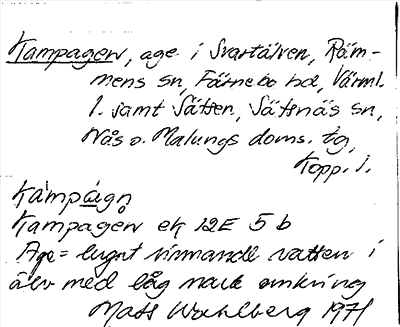 Kampagen, age i Svartälven, Räm-
mens sn, Färnebo hd, Värml.
l. samt Sätten, Sätsnäs sn,
Nås o. Malungs doms. tg,
Kopp. l.
Kàmpágn
Kampagen ek 12E 5 b
Age = lugnt rinnande vatten i
älv med låg mark omkring
Mats Wahlberg 1971